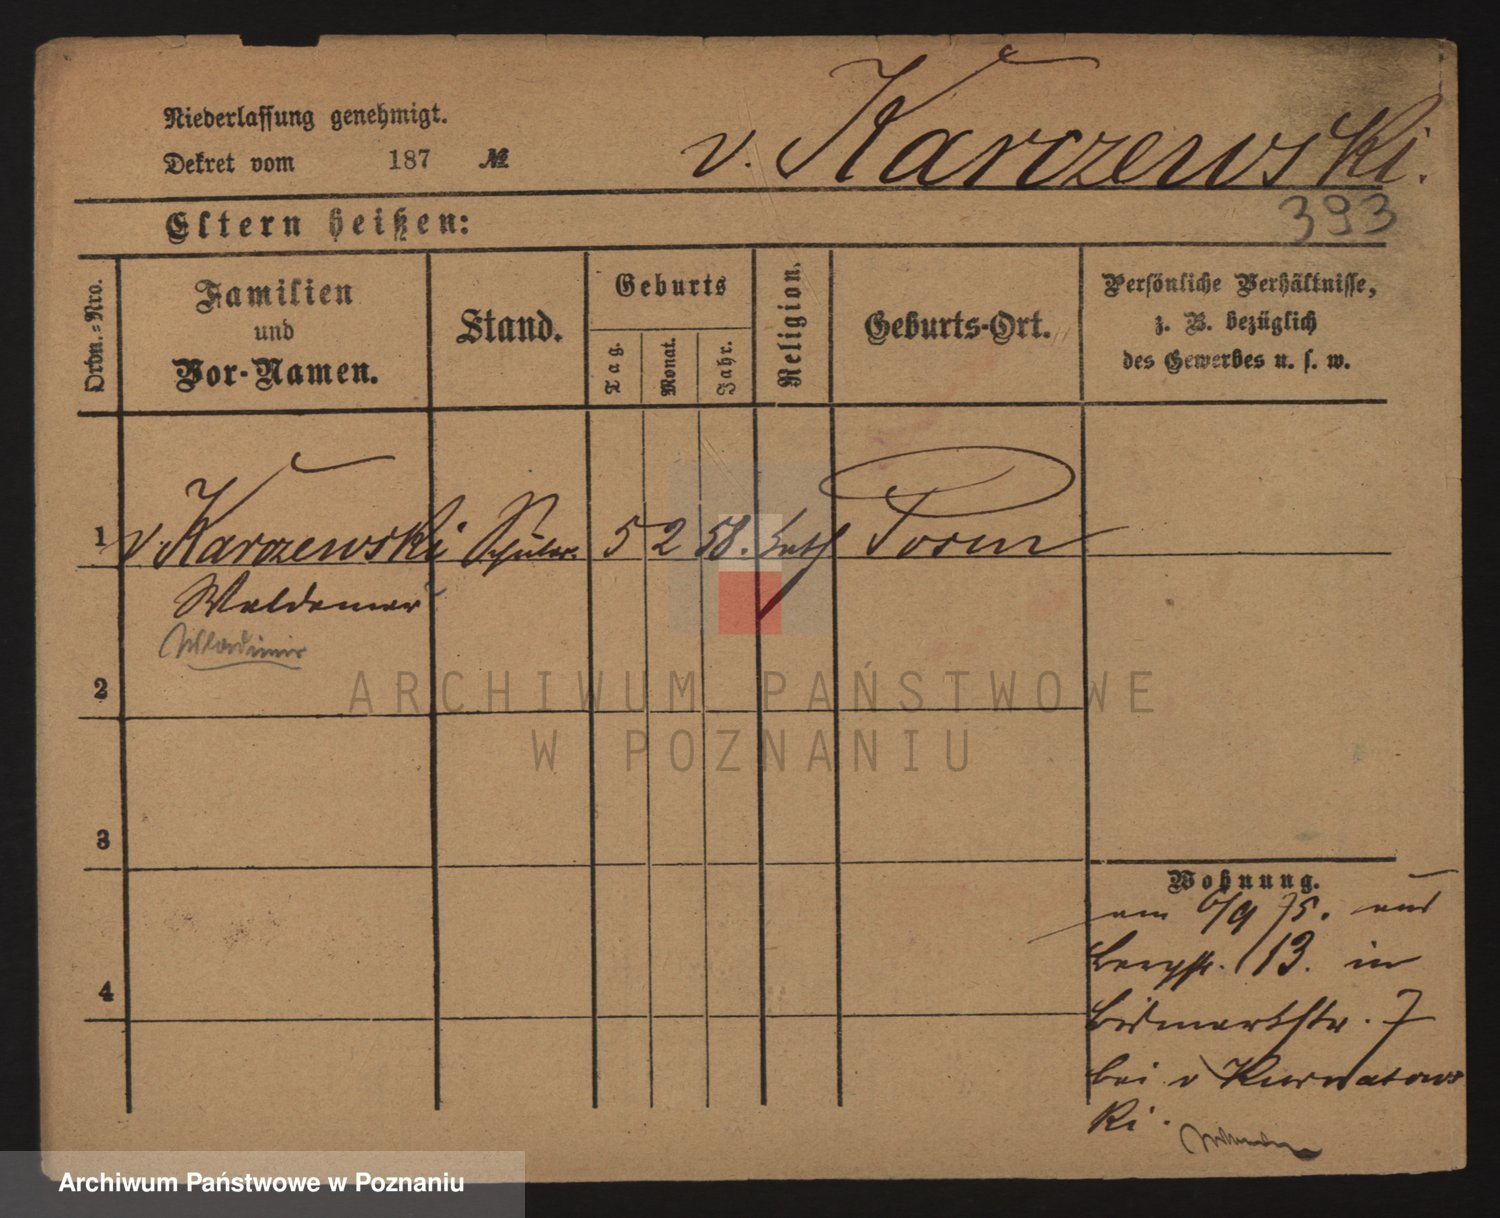 Niederlassung genehmigt.
Dekret vom 187 №
v. Karczewski.
393
Eltern heißen:
Ordn.-Nro.
Familien
und
Vor-Namen.
Stand.
Geburts
Tag.
Monat.
Jahr.
Religion.
Geburts-Ort.
Persönliche Verhältnisse,
z. B. bezüglich
des Gewerbes u. s. w.
1 v. Karczewski Schüler. 5 2 58. kath Posen
Waldemar
Wladimir
2
ARCHIWUM PAŃSTWOWE
W POZNANIU
3
Wohnung.
am 6/9 75. aus
Bergstr. 13. in
4
Bismarkstr. 7
bei v Kurnatows
ki.
Archiwum Państwowe w Poznaniu